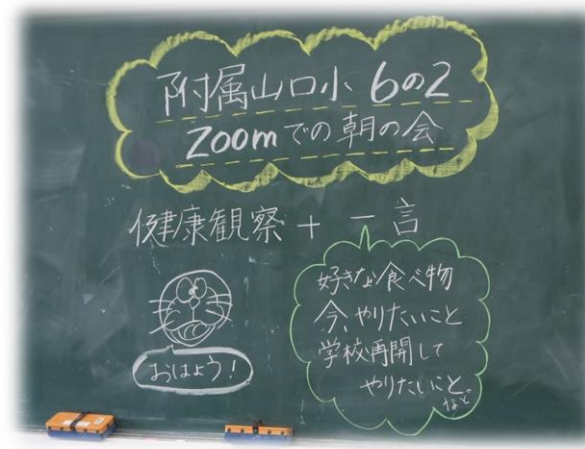 附属山口小 6の2
Zoomでの朝の会
健康観察+一言
おはよう!
好きな食べ物
今、やりたいこと
学校再開して
やりたいこと。
など